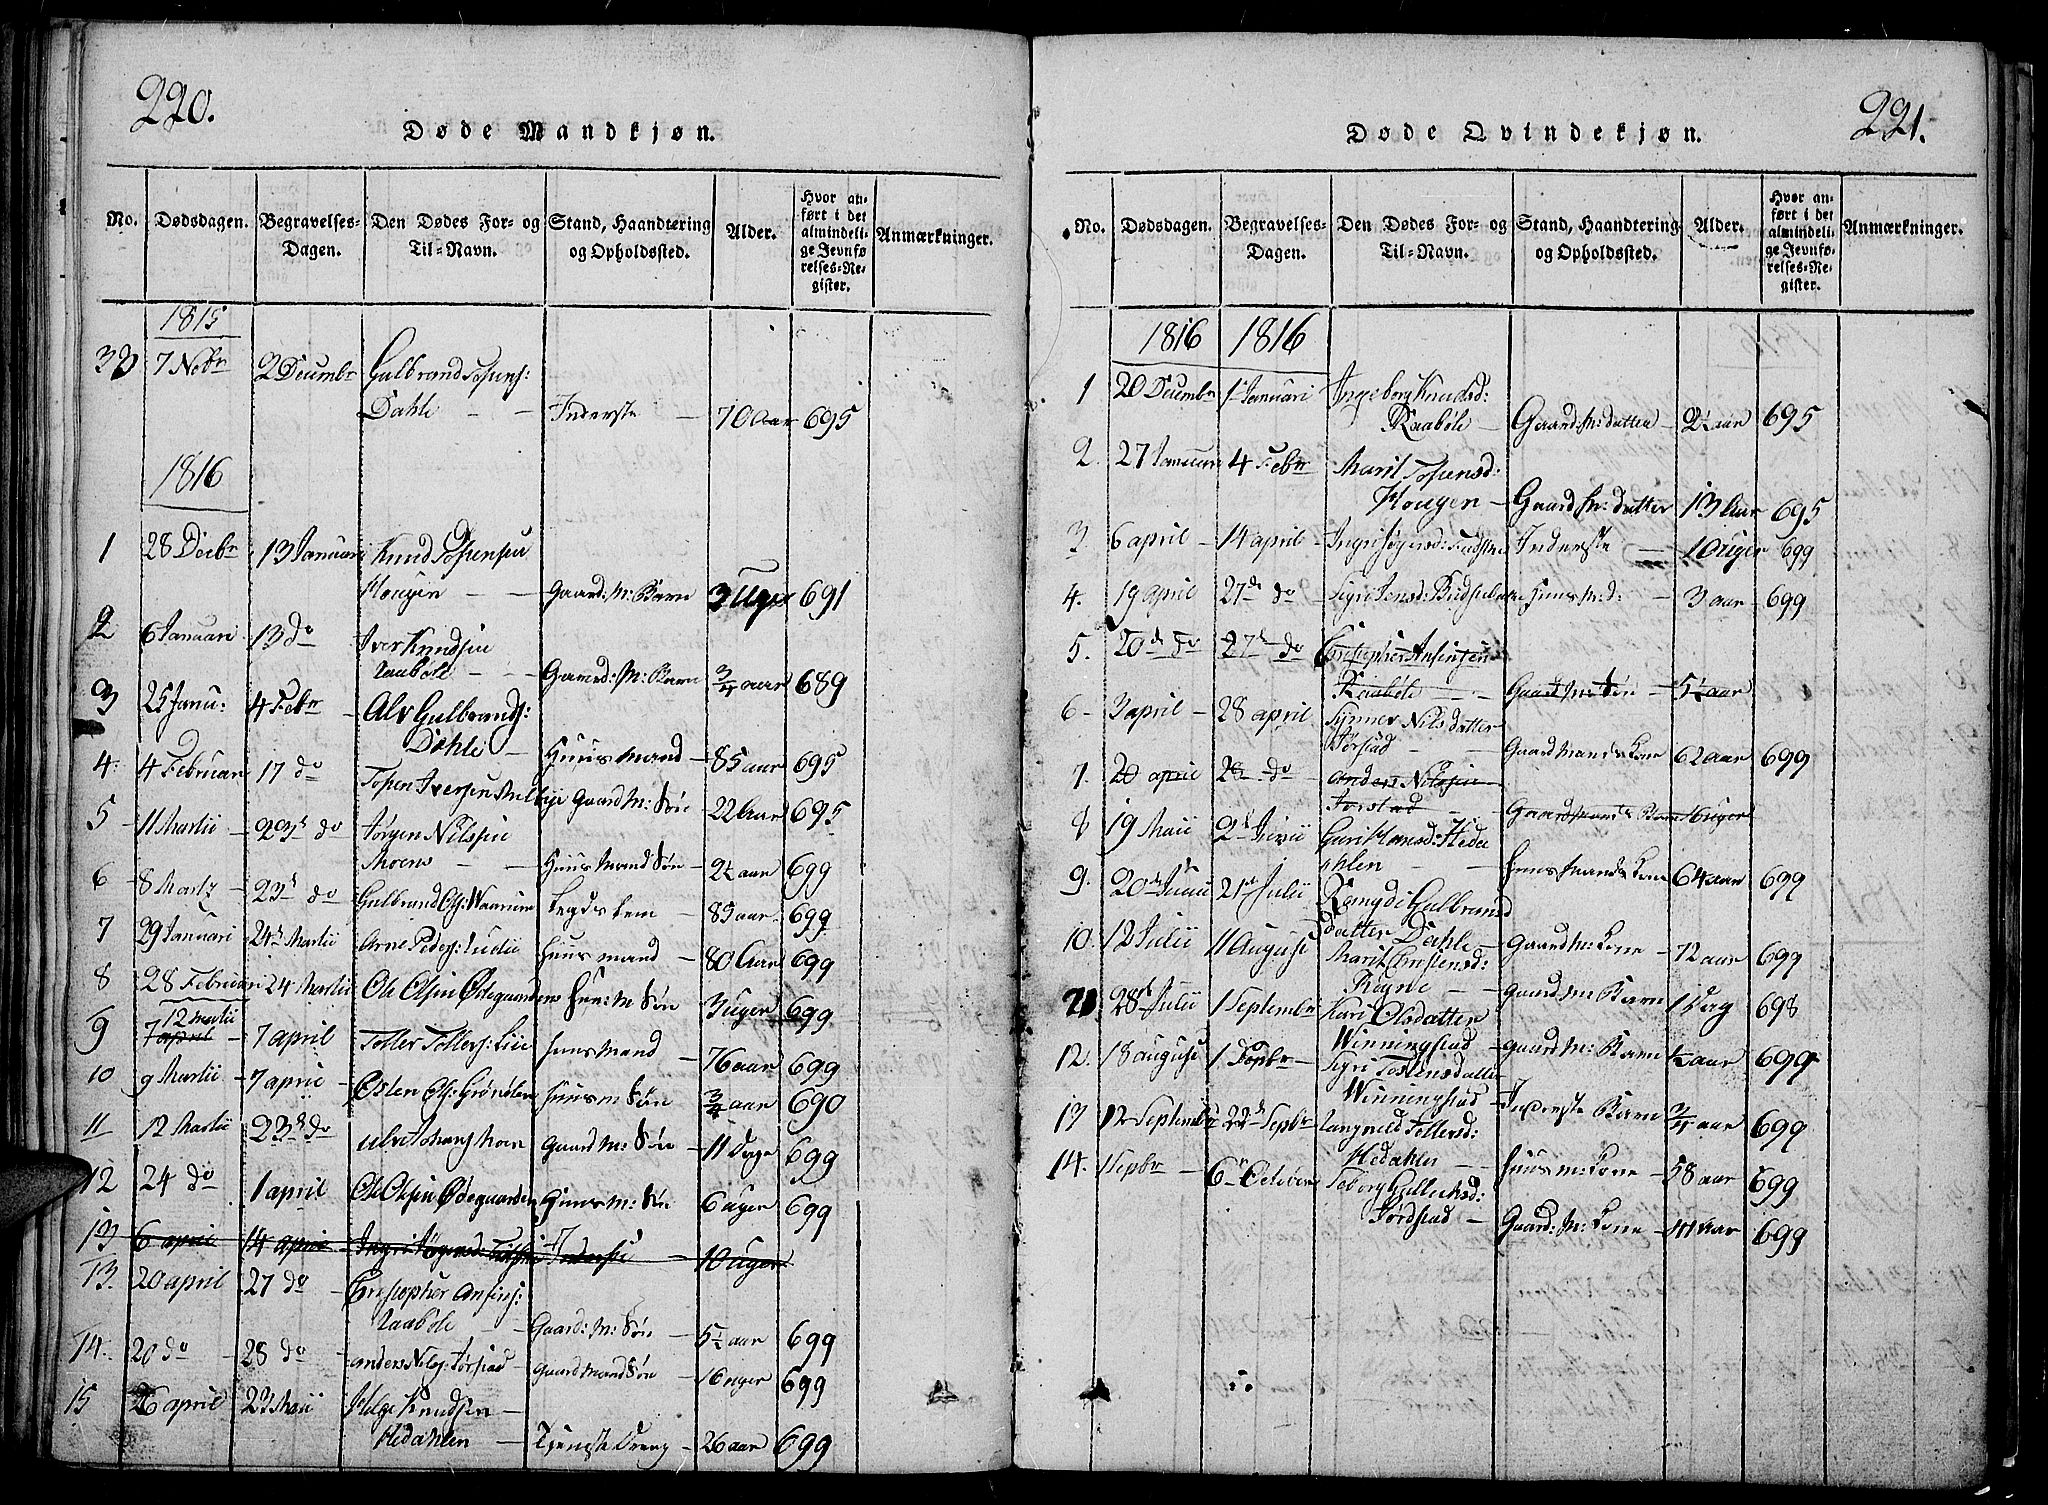 220.
Døde Mandkjøn.
No. Dødsdagen. Begravelses-Dagen. Den Dødes For- og Til-Navn. Stand, Haandtering og Opholdssted. Alder. Hvor anført i det almindelige Jevnførelses-Register. Anmærkninger.
1815
33 7 Nobr 2 Decembr Gulbrand Tostens:
Dahle - - Inderste - 70 Aar 695
1816
1 28 Decbr 13 Januari Knud Tostensen
Hougen - - Gaard: M: Barn 3 Uger 691
2 6 Januari 13 do Iver Knudsen
Raabøle - - Gaard: M: Barn 3/4 aar 689
3 25 Janu: 4 Febr - Alv Gulbrands:
Dahle - Huusmand - 85 aar 695
4: 4 Februari 17 do Tosten Iversen Gaard M: Søn - 22 Aar 695
5 - 11 Martii - 23d do Jørgen Nilssen
Moens - - Huusmand Søn - 2½ aar 699
6 8 Martz - 23d do Gulbrand Ols: Legdslem - 83 aar 699
7 29 Januari 24d Martii Arne Peders: Huusmand - 80 Aar 699
8 28 Februari 24 Martii Ole Olsen Ødegaardens Huus: M Søn 3 uger 699
12 Martii
9 7 april - 7 april - Toller Tollers: Lie Huusmand - 76 aar 699
10 9 Martii - 7 april - Østen Ols: Grønølen Huusm Søn 3/4 aar 690
11 12 Martii 23d do Gaard M: Søn - 11 Dage 699
12 24 do 1 april Ole Olsen Ødegaarden Huusm: Søn 6 uger 699
13 6 april 14 april Ingri Jørgensd: Inderste - 10 uger
13. 20 april 27 do - Christopher Anstens:
Raabøle - - Gaard: M: Søn - 5½ aar 699
14. 20 do - 28 do - Anders Nils: Jørstad Gaardmand Søn - 16 uger 699
15 26 april 2d Maii Helge Knudsen -
Hedahlen - Tjeneste Dreng - 26 aar 699
221.
Døde Qvindekjøn.
No. Dødsdagen. Begravelses-Dagen. Den Dødes For- og Til-Navn. Stand, Haandtering og Opholdssted. Alder. Hvor anført i det almindelige Jevnførelses-Register. Anmærkninger.
1816 1816
1 20 Decembr 1 Januari Ingeborg Knudsd:
Raabøle - Gaard: M: datter - 2½ aar 695
2. 27 Januari 4 Febr Marit Tostensd:
Hougen - Gaard M: datter 13 Aar 695
3. 6 april - 14 april - Ingri Jørgensd: Inderste - 10 uger 699
4. 19 april 27de do Sigri Jensd: Huusm: d: - 3 aar - 699
5. 20de do 27d do Christopher Anstensen
Raabøle - - Gaard M: Søn - 5½ aar
6 - 3 april - 28 april Synnev Nilsdatter
Jørstad - - Gaard Mands Kone 62 aar 699
7. 20 april 28 do Anders Nilssen
Jørstad - Gaardmands Barn 16 uger
8 19 Maii 2d Junii Guri Hansd: Heda
hlen - - Huus Mands Kone 64 aar 699
9. 20d Junii 21d Julii Rangdi Gulbrands
datter Dahle - Gaard M: Kone - 72 aar 699
10. 12 Julii 11 August Marit Christensd:
- - Gaard M: Barn 1 Dag 698
11. 28d Julii 1 Septembr Kari Olsdatter
Winningstad - gaard M: Barn ½ aar 699
12. 18 august 1 Sepbr - Sigri Tostensdatter
Winningstad - Inderste Barn 3/4 aar 699
13 12 Septembr 22d Sepbr Langnild Tollersd:
Hedahlen - - Huusm: Kone - 58 aar 699
14. 1 Sepbr - 6te October
Jørdstad - Gaard: M: Kone - 41 aar 699